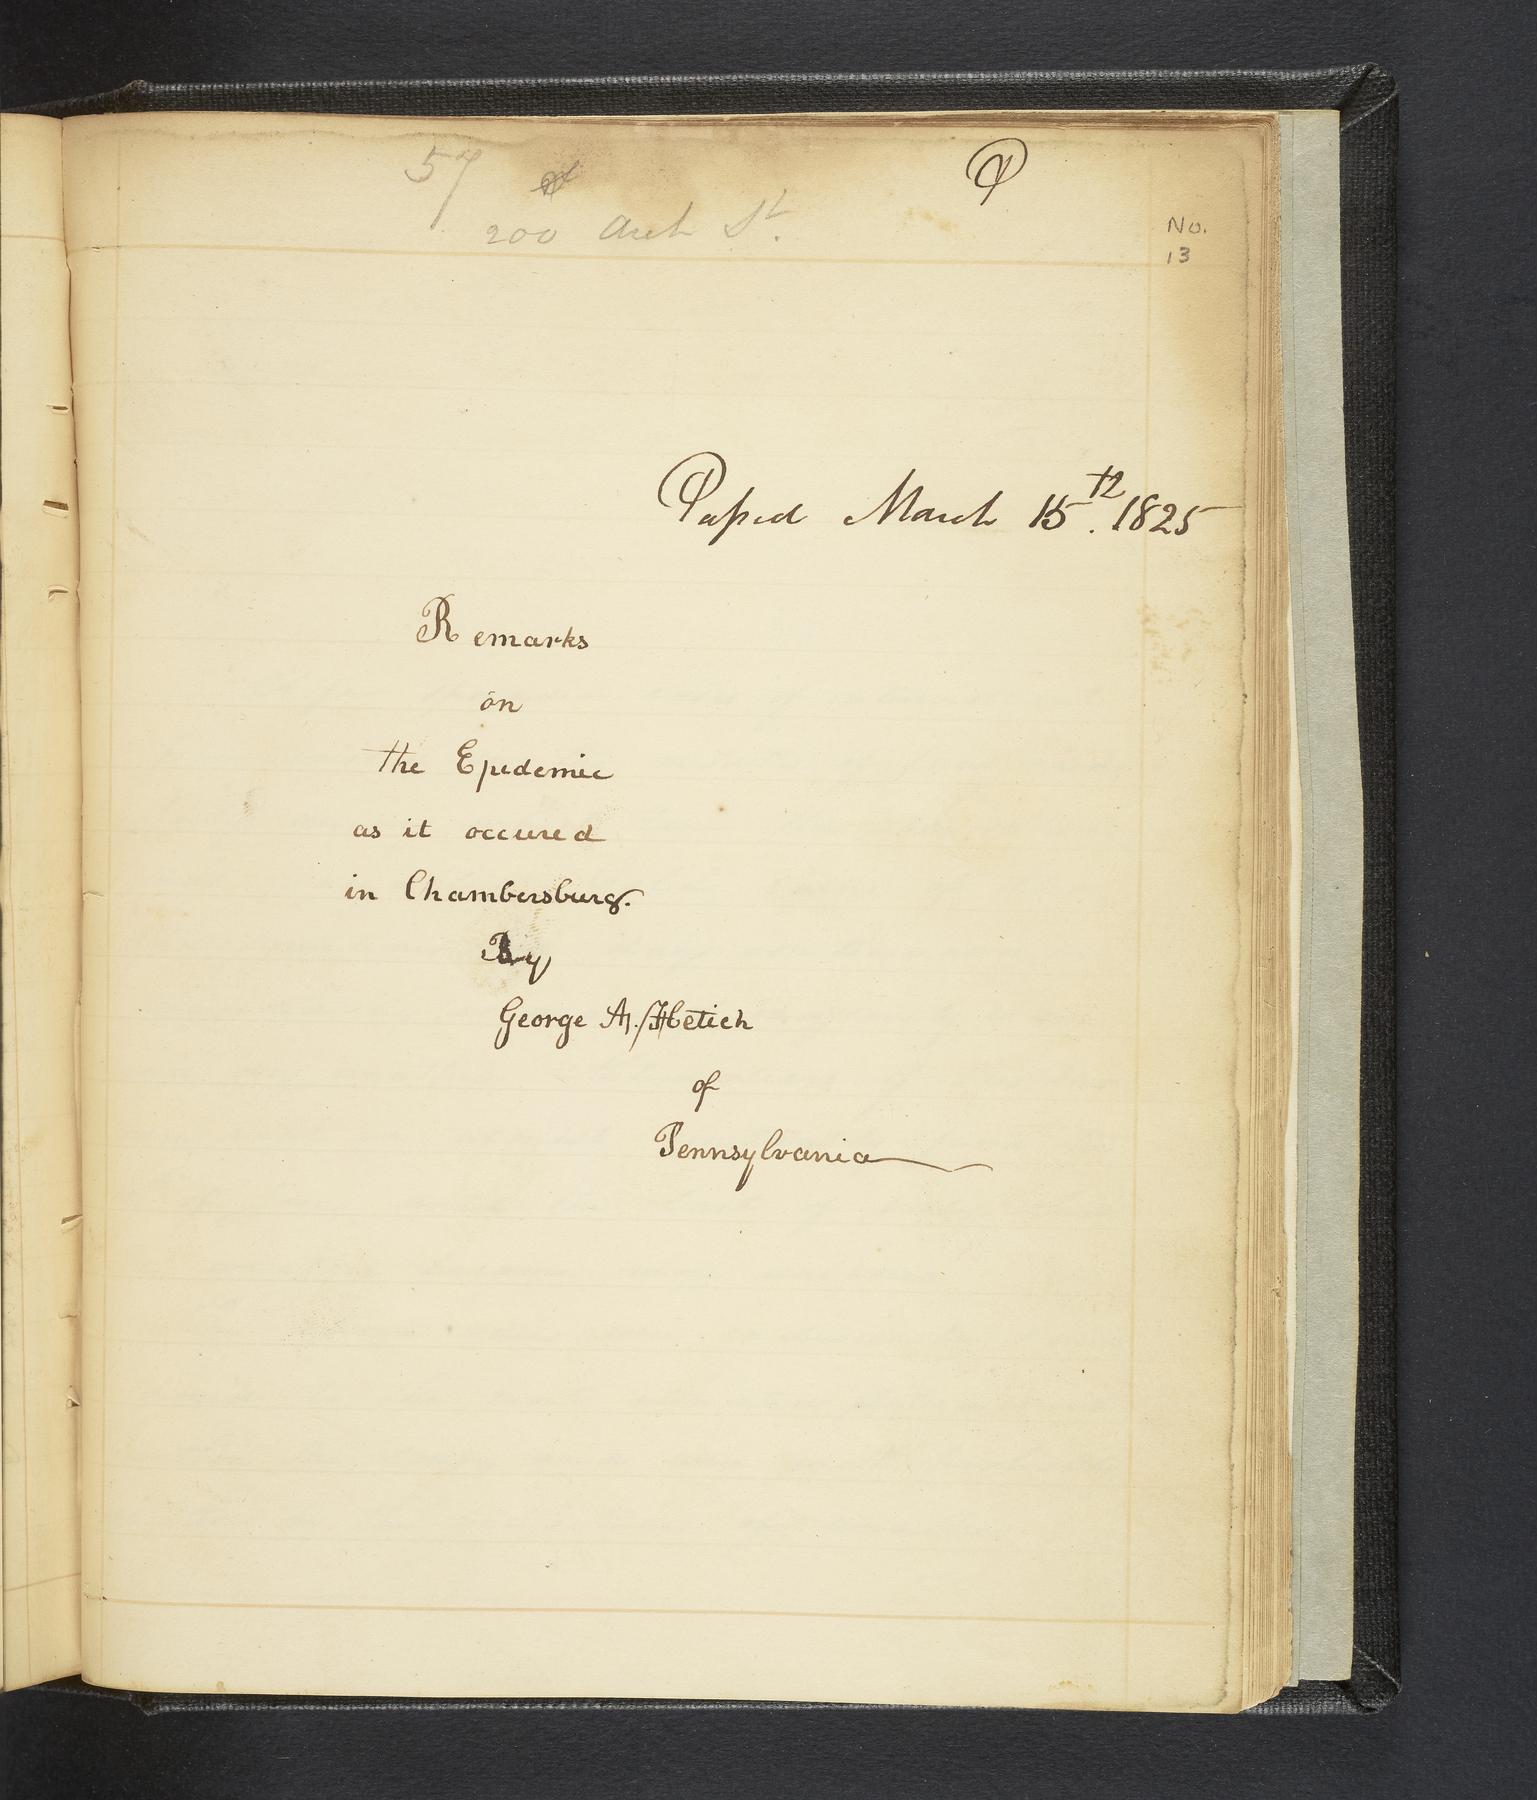 57
P
200 Arch St.
No.
13
Passed March 15th. 1825
Remarks
on
the Epidemic
as it occured
in Chambersburg.
By
George A. Hetich
of
Pennsylvania